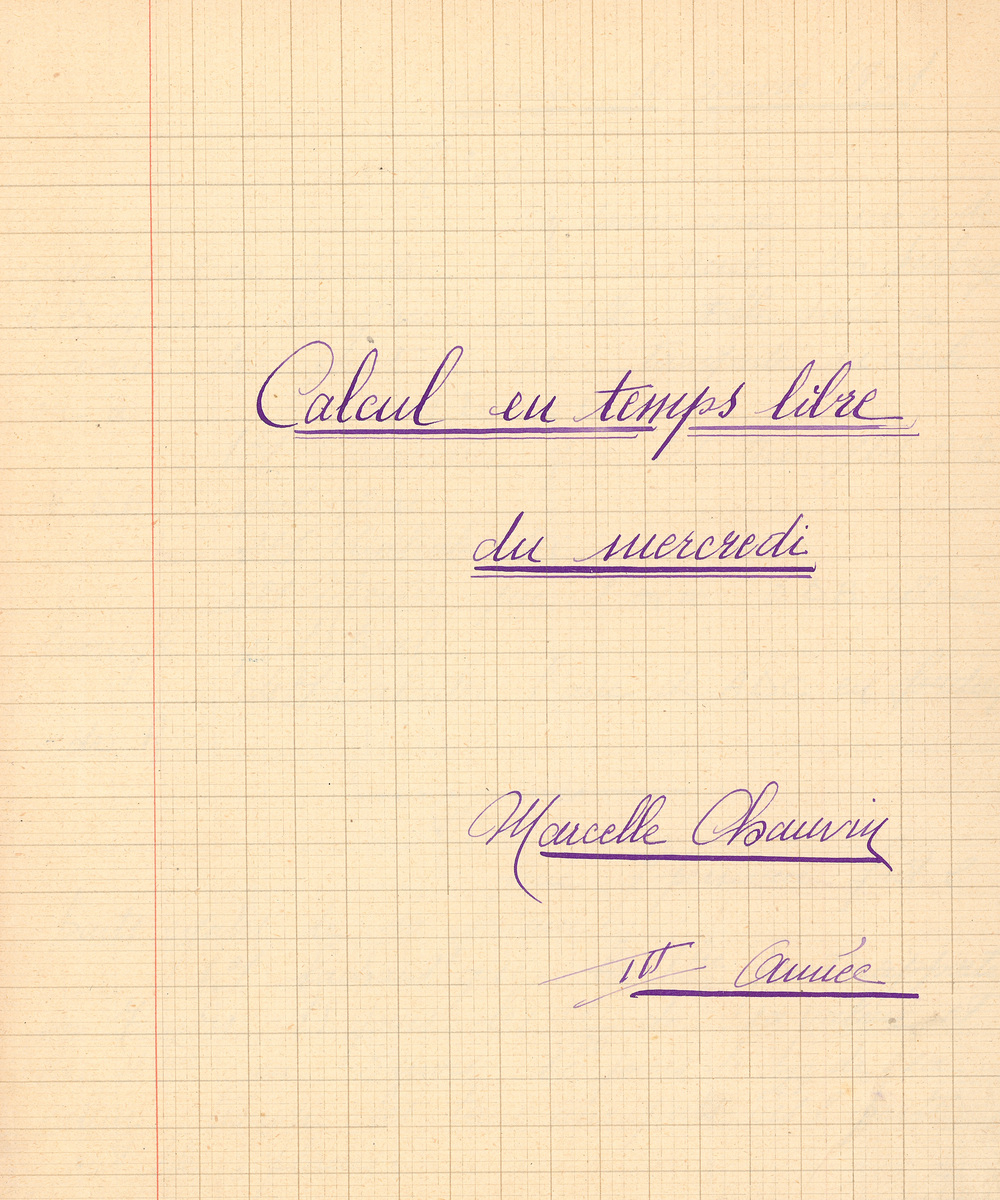 Calcul en temps libre
du mercredi
Marcelle Chauvin
IVe Année